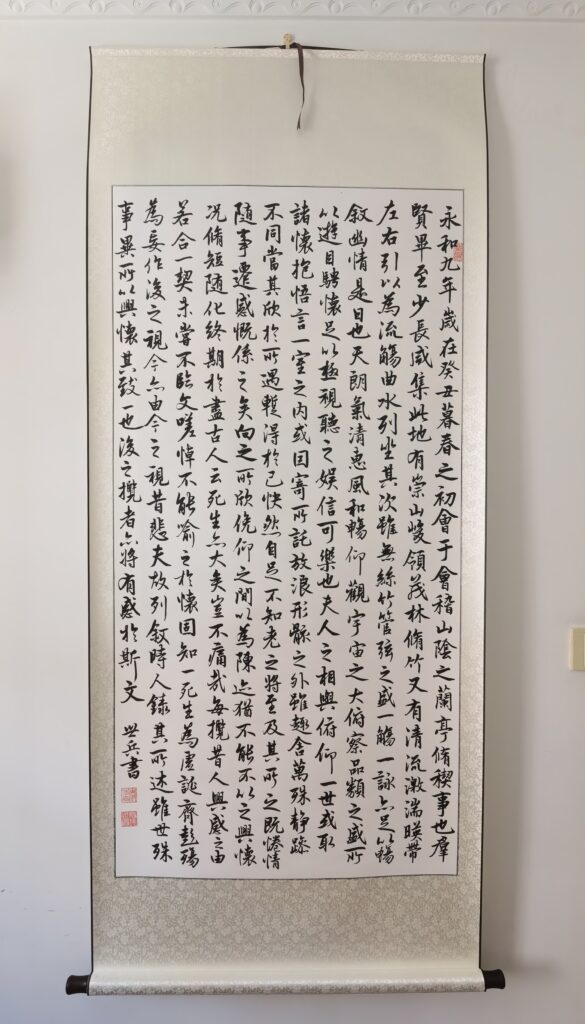 永和九年歲在癸丑暮春之初會于會稽山陰之蘭亭脩稧事也羣
賢畢至少長咸集此地有崇山峻領茂林脩竹又有清流激湍暎帶
左右引以為流觴曲水列坐其次雖無絲竹管弦之盛一觴一詠亦足以暢
敘幽情是日也天朗氣清惠風和暢仰觀宇宙之大俯察品類之盛所
以遊目騁懷足以極視聽之娛信可樂也夫人之相與俯仰一世或取
諸懷抱悟言一室之內或因寄所託放浪形骸之外雖趣舍萬殊靜躁
不同當其欣於所遇暫得於己快然自足不知老之將至及其所之既惓情
隨事遷感慨係之矣向之所欣俛仰之間以為陳迹猶不能不以之興懷
況脩短隨化終期於盡古人云死生亦大矣豈不痛哉每攬昔人興感之由
若合一契未嘗不臨文嗟悼不能喻之於懷固知一死生為虛誕齊彭殤
為妄作後之視今亦由今之視昔悲夫故列敘時人錄其所述雖世殊
事異所以興懷其致一也後之攬者亦將有感於斯文 世兵書